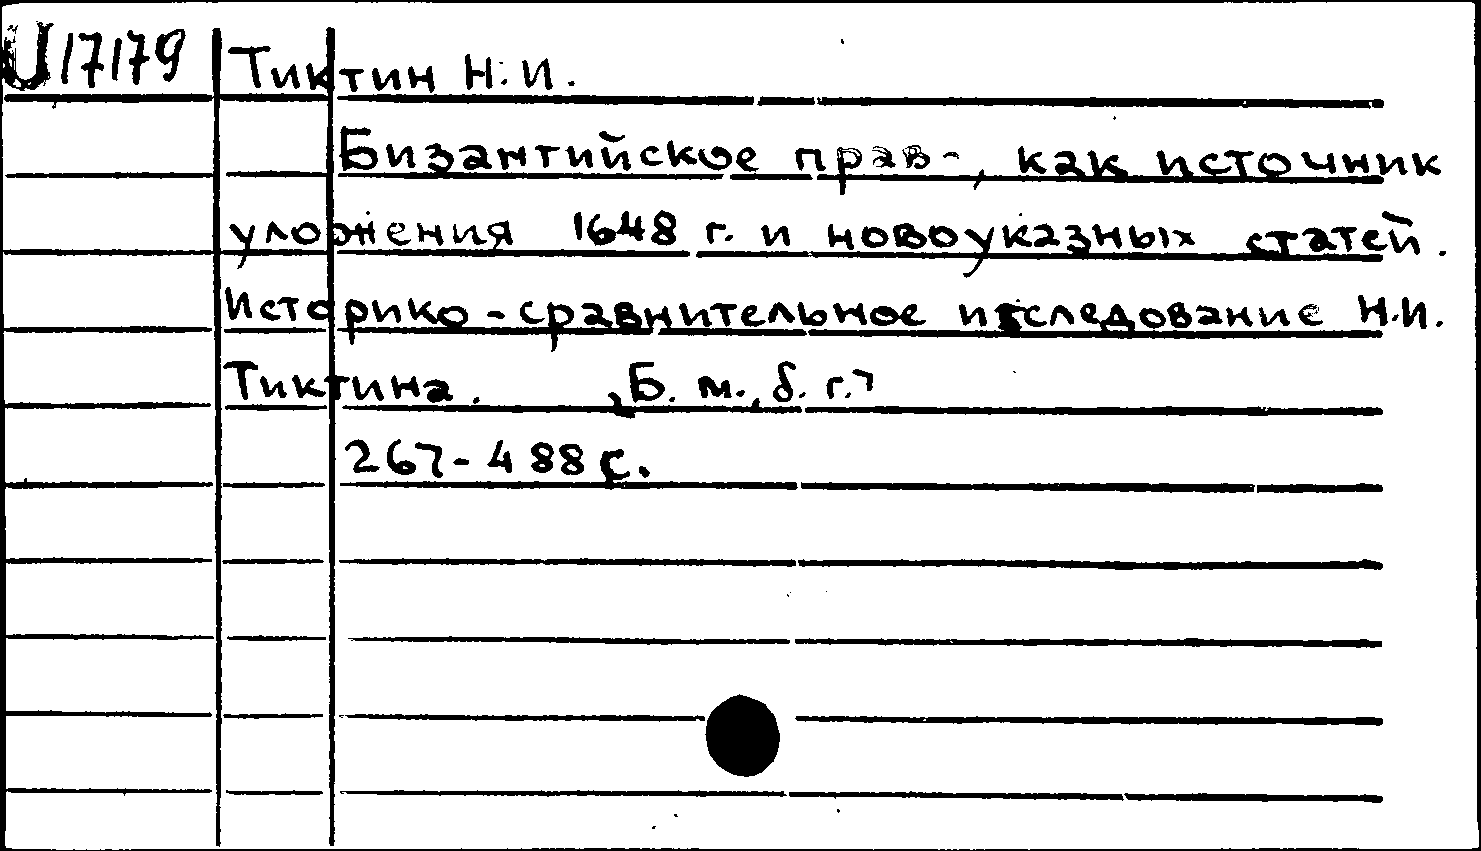 U 17179 Тиктин Н.И.
Бизантийское прав-, как источник
уложения 1648 г. и новоуказных статей.
Историко-сравнительное исследование Н.И.
Тиктина. [Б. м., б. г.]
267-488 с.